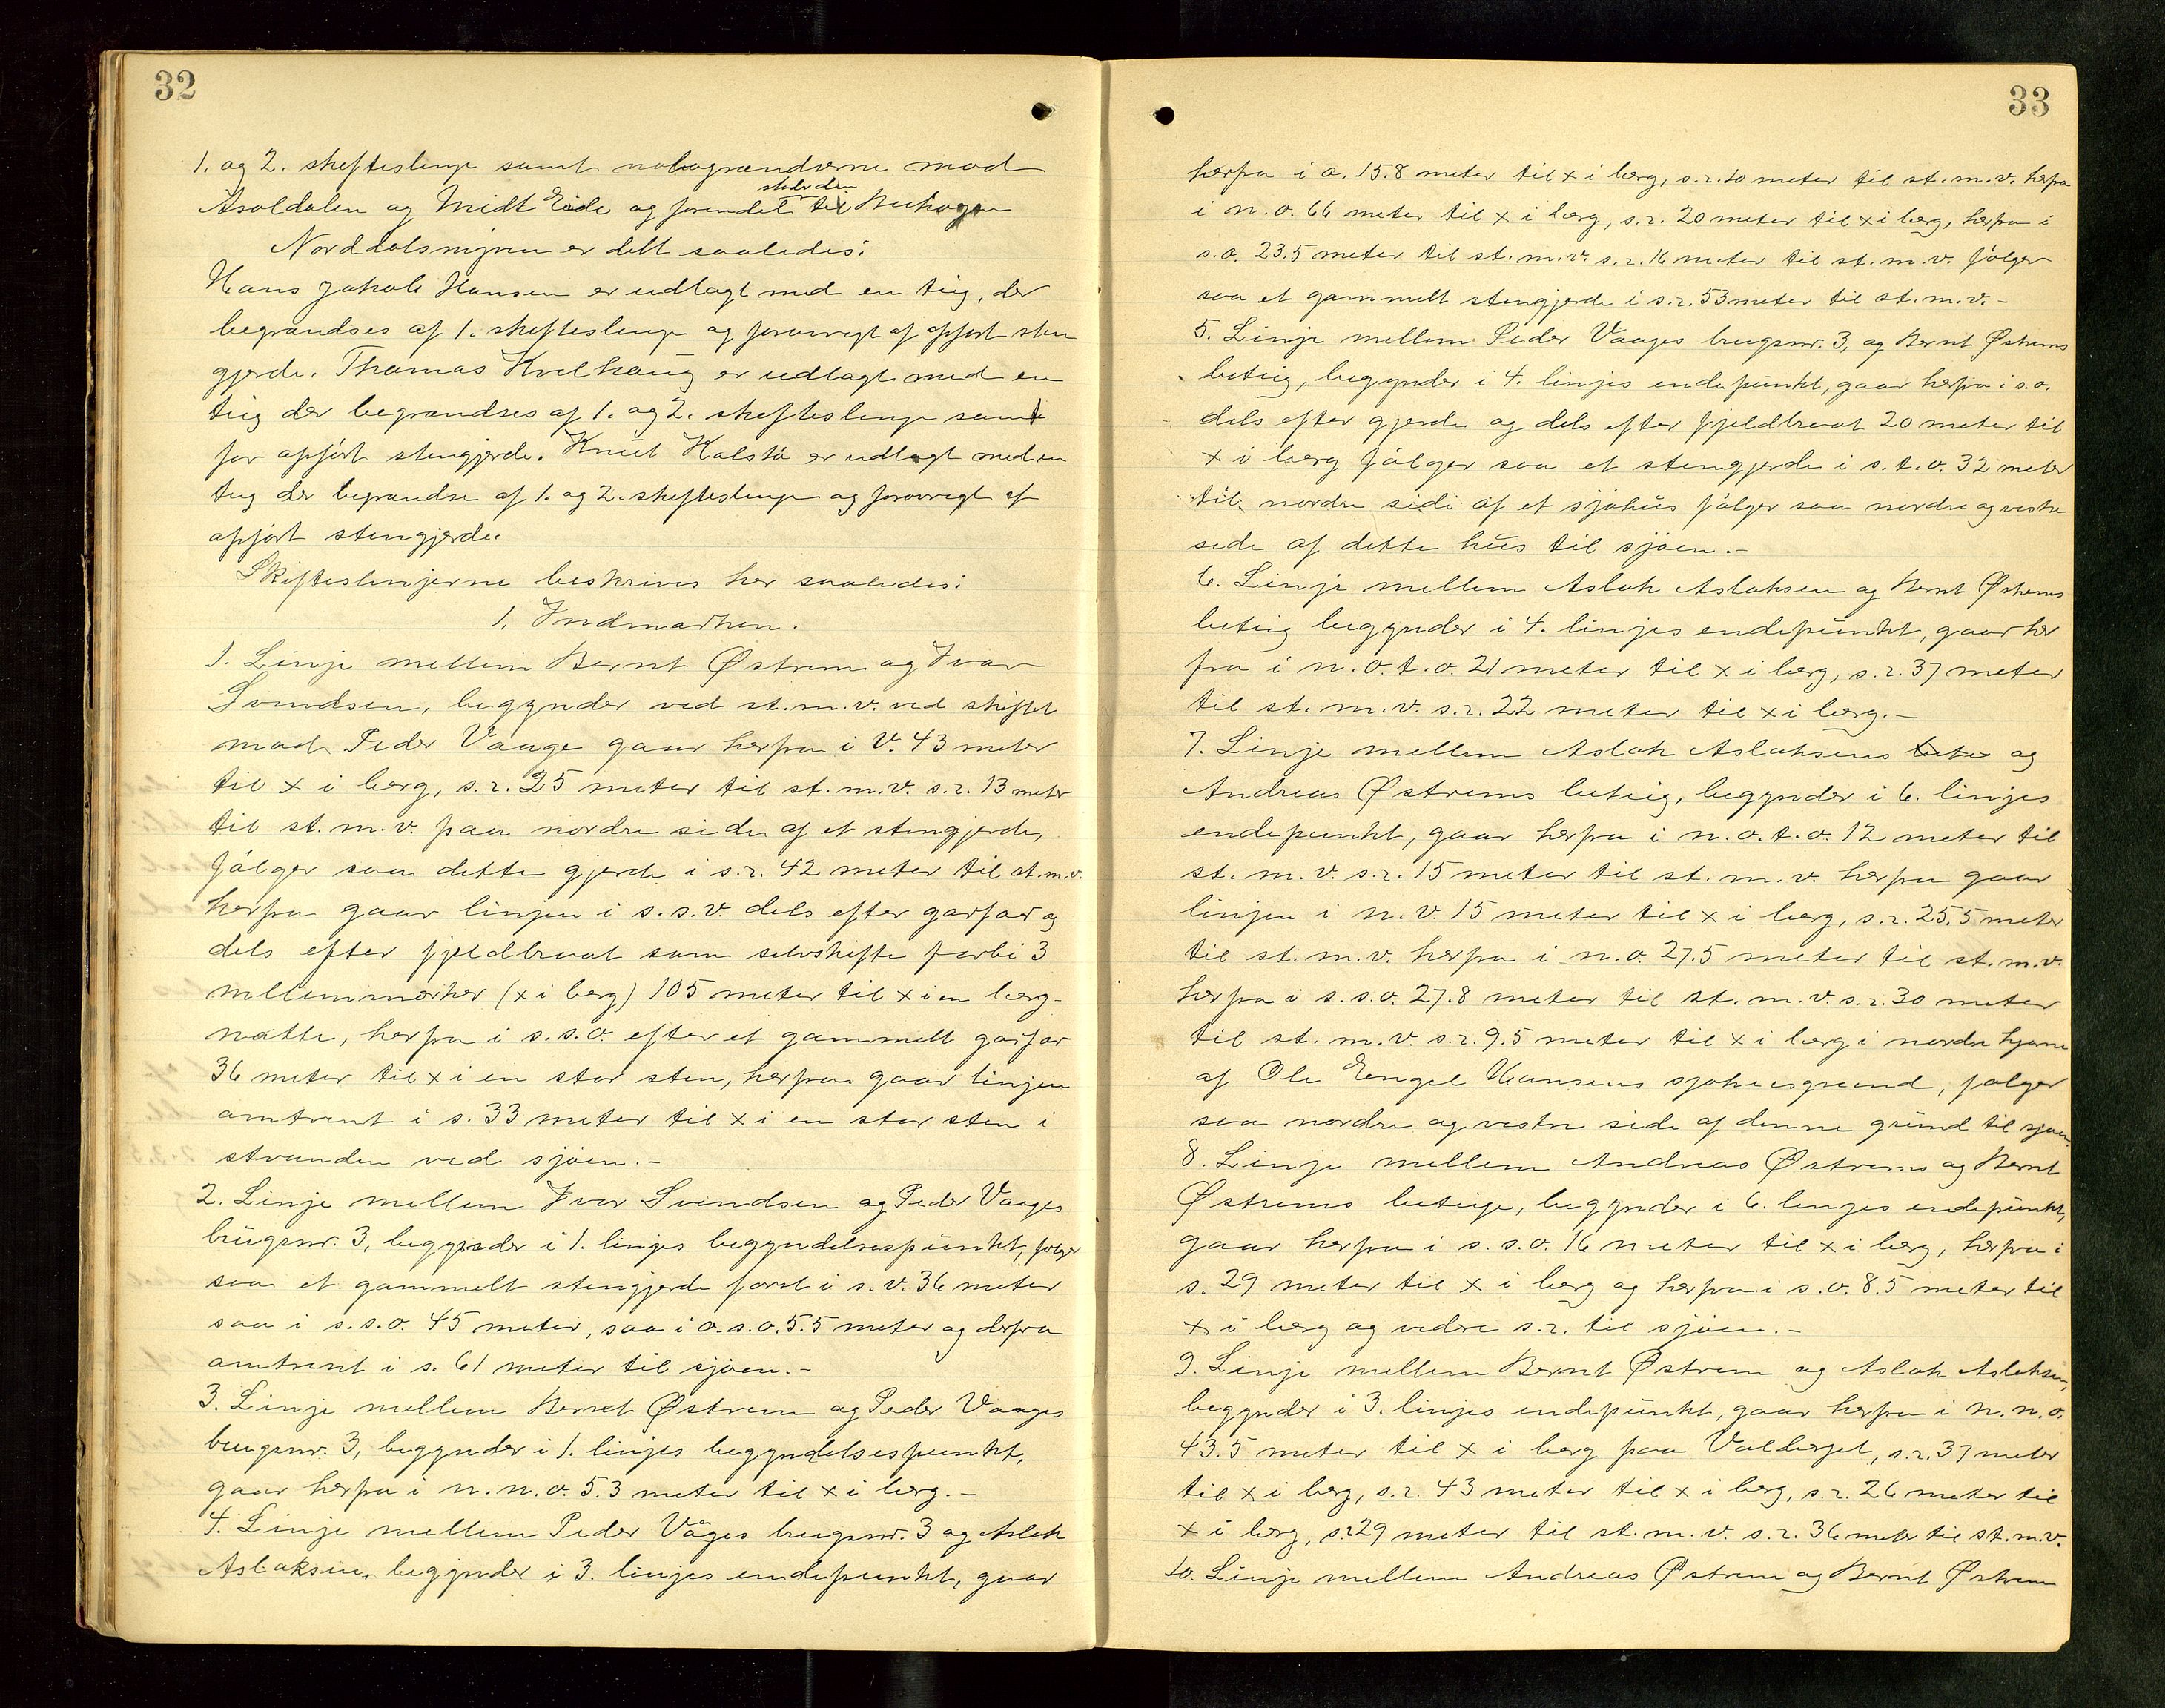 32
1. og 2. skifteslinje samt nabogrændserne mod
Asaldalen og Midt Eide og forendet støder den til
Norddalsmyren er delt saaledes:
Hans Jakob Hansen er udlagt med en teig, der
begrændses af 1. skifteslinje og forøvrigt af opført sten
gjerde. Thomas Kvelhaug er udlagt med en
teig der begrændses af 1. og 2. skifteslinje samt
før opført stengjerde. Knut Kalstø er udlagt med en
teig der begrændse af 1. og 2. skifteslinje og forøvrigt af
opført stengjerde.
Skifteslinjerne beskrives her saaledes:
1. Indmarken.
1. Linje mellem Bernt Østrem og Ivar
Svendsen, begynder ved st. m. v. ved skiftet
mod Peder Vaage gaar herfra i V. 43 meter
til x i berg, s. r. 25 meter til st. m. v. s. r. 13 meter
til st. m. v. paa nordre side af et stengjerde,
følger saa dette gjerde i s. r. 42 meter til st. m. v.
herfra gaar linjen i s. s. v. dels efter garfar og
dels efter fjeldbrat som selvskifte forbi 3
mellemmerker (x i berg) 105 meter til x i en berg-
natte, herfra i s. s. o. efter et gammelt garfar
36 meter til x i en stor sten, herfra gaar linjen
omtrent i s. 33 meter til x i en stor sten i
stranden ved sjøen.-
2. Linje mellem Ivar Svendsen og Peder Vaages
brugsnr. 3, begynder i 1. linjes begyndelsespunkt, følger
saa et gammelt stengjerde først i s. v. 36 meter
saa i s. s. o. 45 meter, saa i o. s. o. 5.5 meter og derfra
omtrent i s. 61 meter til sjøen.-
3. Linje mellem Bernt Østrem og Peder Vaages
brugsnr. 3, begynder i 1. linjes begyndelsespunkt,
gaar herfra i n. n. o. 5.3 meter til x i berg.-
4. Linje mellem Peder Våges brugsnr. 3 og Aslak
Aslaksen, begynder i 3. linjes endepunkt, gaar
33
herfra i o. 15.8 meter til x i berg, s. r. 10 meter til st. m. v. herfra
i n. o. 66 meter til x i berg, s. r. 20 meter til x i berg, herfra i
s. o. 23.5 meter til st. m. v. s. r. 16 meter til st. m. v. følger
saa et gammelt stengjerde i s. r. 53 meter til st. m. v.-
5. Linje mellem Peder Vaages brugsnr. 3, og Bernt Østrems
beteig, begynder i 4. linjes endepunkt, gaar herfra i s. o.
dels efter gjerde og dels efter fjeldbrat 20 meter til
x i berg følger saa et stengjerde i s. t. o. 32 meter
til nordre side af et sjøhus følger saa nordre og vestre
side af dette hus til sjøen.-
6. Linje mellem Aslak Aslaksen og Bernt Østrems
beteig begynder i 4. linjes endepunkt, gaar her
fra i n. o. t. o. 21 meter til x i berg, s. r. 37 meter
til st. m. v. s. r. 22 meter til x i berg.-
7. Linje mellem Aslak Aslaksens og
Andreas Østrems beteig, begynder i 6. linjes
endepunkt, gaar herfra i n. o. t. o. 12 meter til
st. m. v. s. r. 15 meter til st. m. v. herfra gaar
linjen i n. v. 15 meter til x i berg, s. r. 25.5 meter
til st. m. v. herfra i n. o. 27.5 meter til st. m. v.
herfra i s. s. o. 27.8 meter til st. m. v. s. r. 30 meter
til st. m. v. s. r. 9.5 meter til x i berg i nordre hjørne
af Ole Engel Hansens sjøhusgrund, følger
saa nordre og vestre side af denne grund til sjøen
8. Linje mellem Andreas Østrems og Bernt
Østrems beteige, begynder i 6. linjes endepunkt,
gaar herfra i s. s. o. 16 meter til x i berg, herfra i
s. 29 meter til x i berg og herfra i s. o. 8.5 meter til
x i berg og videre s. r. til sjøen.-
9. Linje mellem Bernt Østrem og Aslak Aslaksen,
begynder i 3. linjes endepunkt, gaar herfra i n. n. o.
43.5 meter til x i berg paa Valberget, s. r. 37 meter
til x i berg, s. r. 43 meter til x i berg, s. r. 26 meter til
x i berg, s. r. 29 meter til st. m. v. s. r. 36 meter til st. m. v.
10. Linje mellem Andreas Østrem og Bernt Østrem